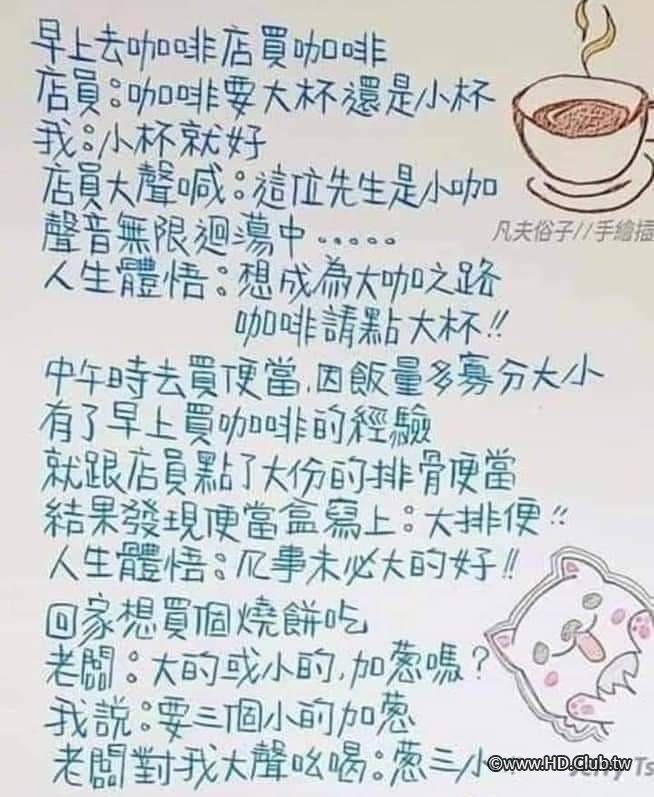 早上去咖啡店買咖啡
店員：咖啡要大杯還是小杯
我：小杯就好
店員大聲喊：這位先生是小咖
聲音無限迴蕩中.....
凡夫俗子//手繪插
人生體悟：想成為大咖之路
咖啡請點大杯!!
中午時去買便當,因飯量多寡分大小
有了早上買咖啡的經驗
就跟店員點了大份的排骨便當
結果發現便當盒寫上：大排便!!
人生體悟：凡事未必大的好!!
回家想買個燒餅吃
老闆：大的或小的,加蔥嗎？
我說：要三個小的加蔥
老闆對我大聲吆喝：蔥三小
©www.HD.Club.tw
Jerry Ts